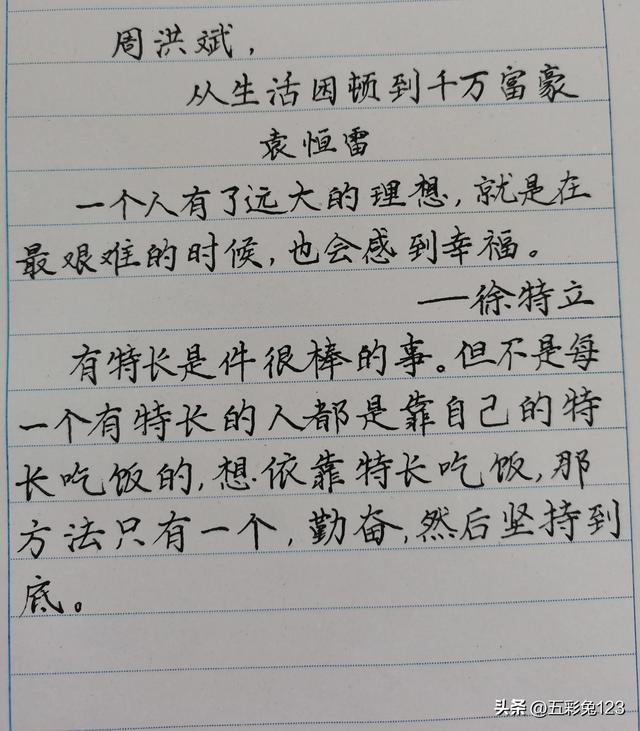 周洪斌，
从生活困顿到千万富豪
袁恒雷
一个人有了远大的理想，就是在
最艰难的时候，也会感到幸福。
——徐特立
有特长是件很棒的事。但不是每
一个有特长的人都是靠自己的特
长吃饭的，想依靠特长吃饭，那
方法只有一个，勤奋，然后坚持到
底。
头条@五彩兔123